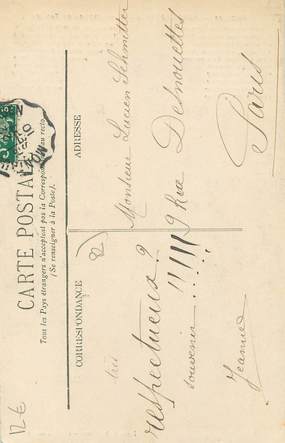 CARTE POSTALE
Tous les Pays étrangers n'acceptent pas la Correspondance au recto
(Se renseigner à la Poste).
CORRESPONDANCE
ADRESSE
très
respectueux?
souvenir!!!!!!
Jeanne
Monsieur Lucien Schmitter
9 Rue Desnouettes
Paris
12€